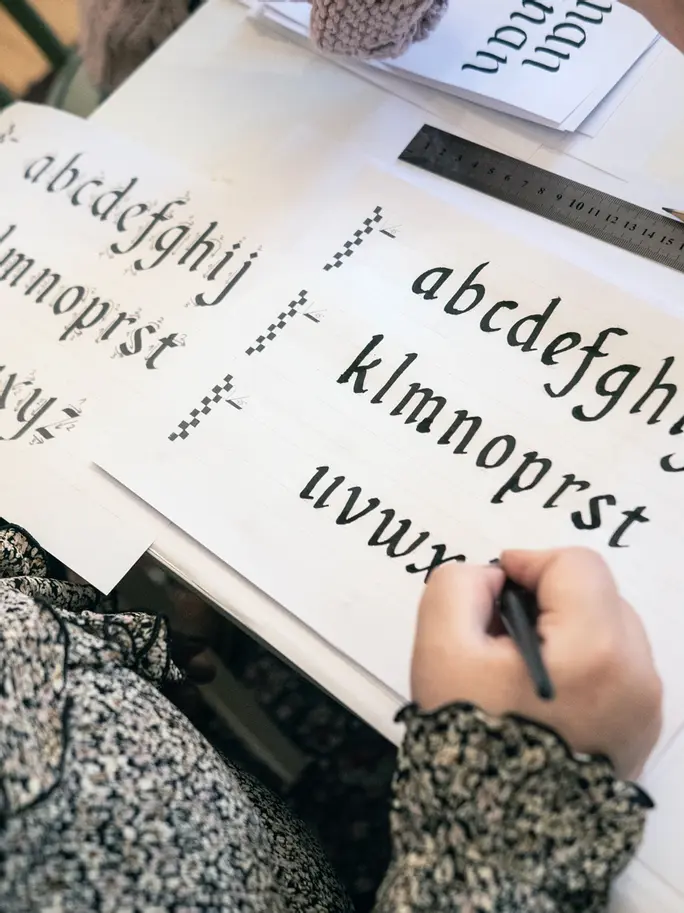 abcdefghij
lmnoprst
xyz
abcdefgh
klmnoprst
uvwx
1 2 3 4 5 6 7 8 9 10 11 12 13 14 15